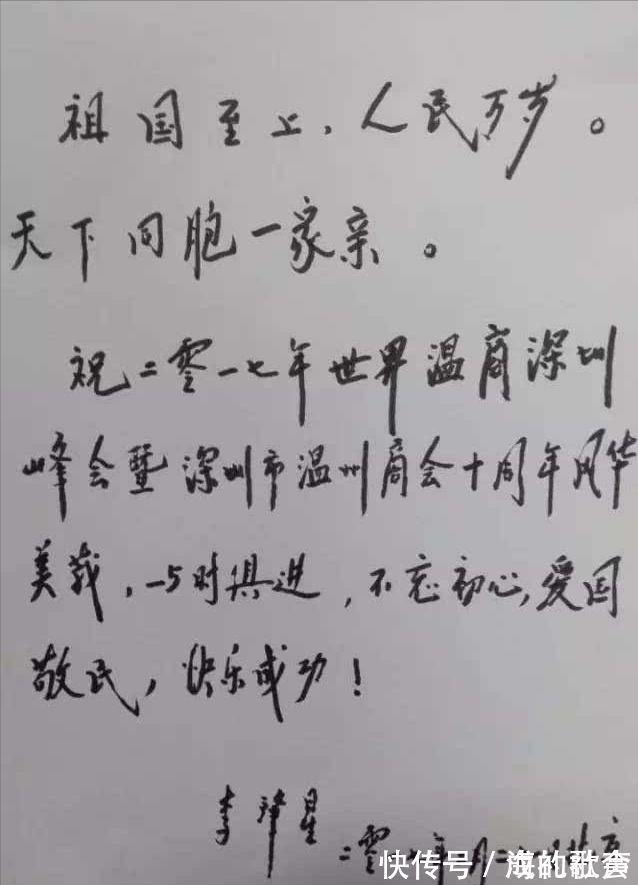 祖国至上,人民万岁。
天下同胞一家亲。
祝二零一七年世界温商深圳
峰会暨深圳市温州商会十周年风华
美哉,与时俱进,不忘初心,爱国
敬民,快乐成功!
李肇星
二零一 年 月二 北京
快传号 / 海的歌